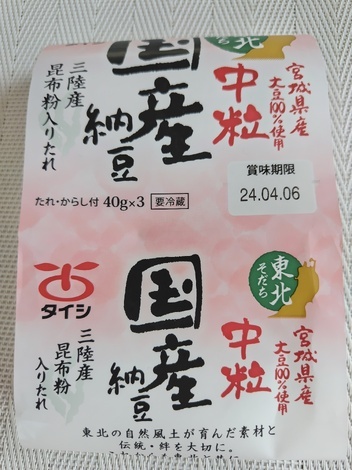 東北
そだち
宮城県産
大豆100%使用
中粒
国産
納豆
三陸産
昆布粉入りたれ
賞味期限
24.04.06
たれ・からし付 40g×3 要冷蔵
東北
そだち
宮城県産
大豆100%使用
中粒
国産
納豆
タイシ
三陸産
昆布粉
入りたれ
東北の自然風土が育んだ素材と
伝統・絆を大切に。